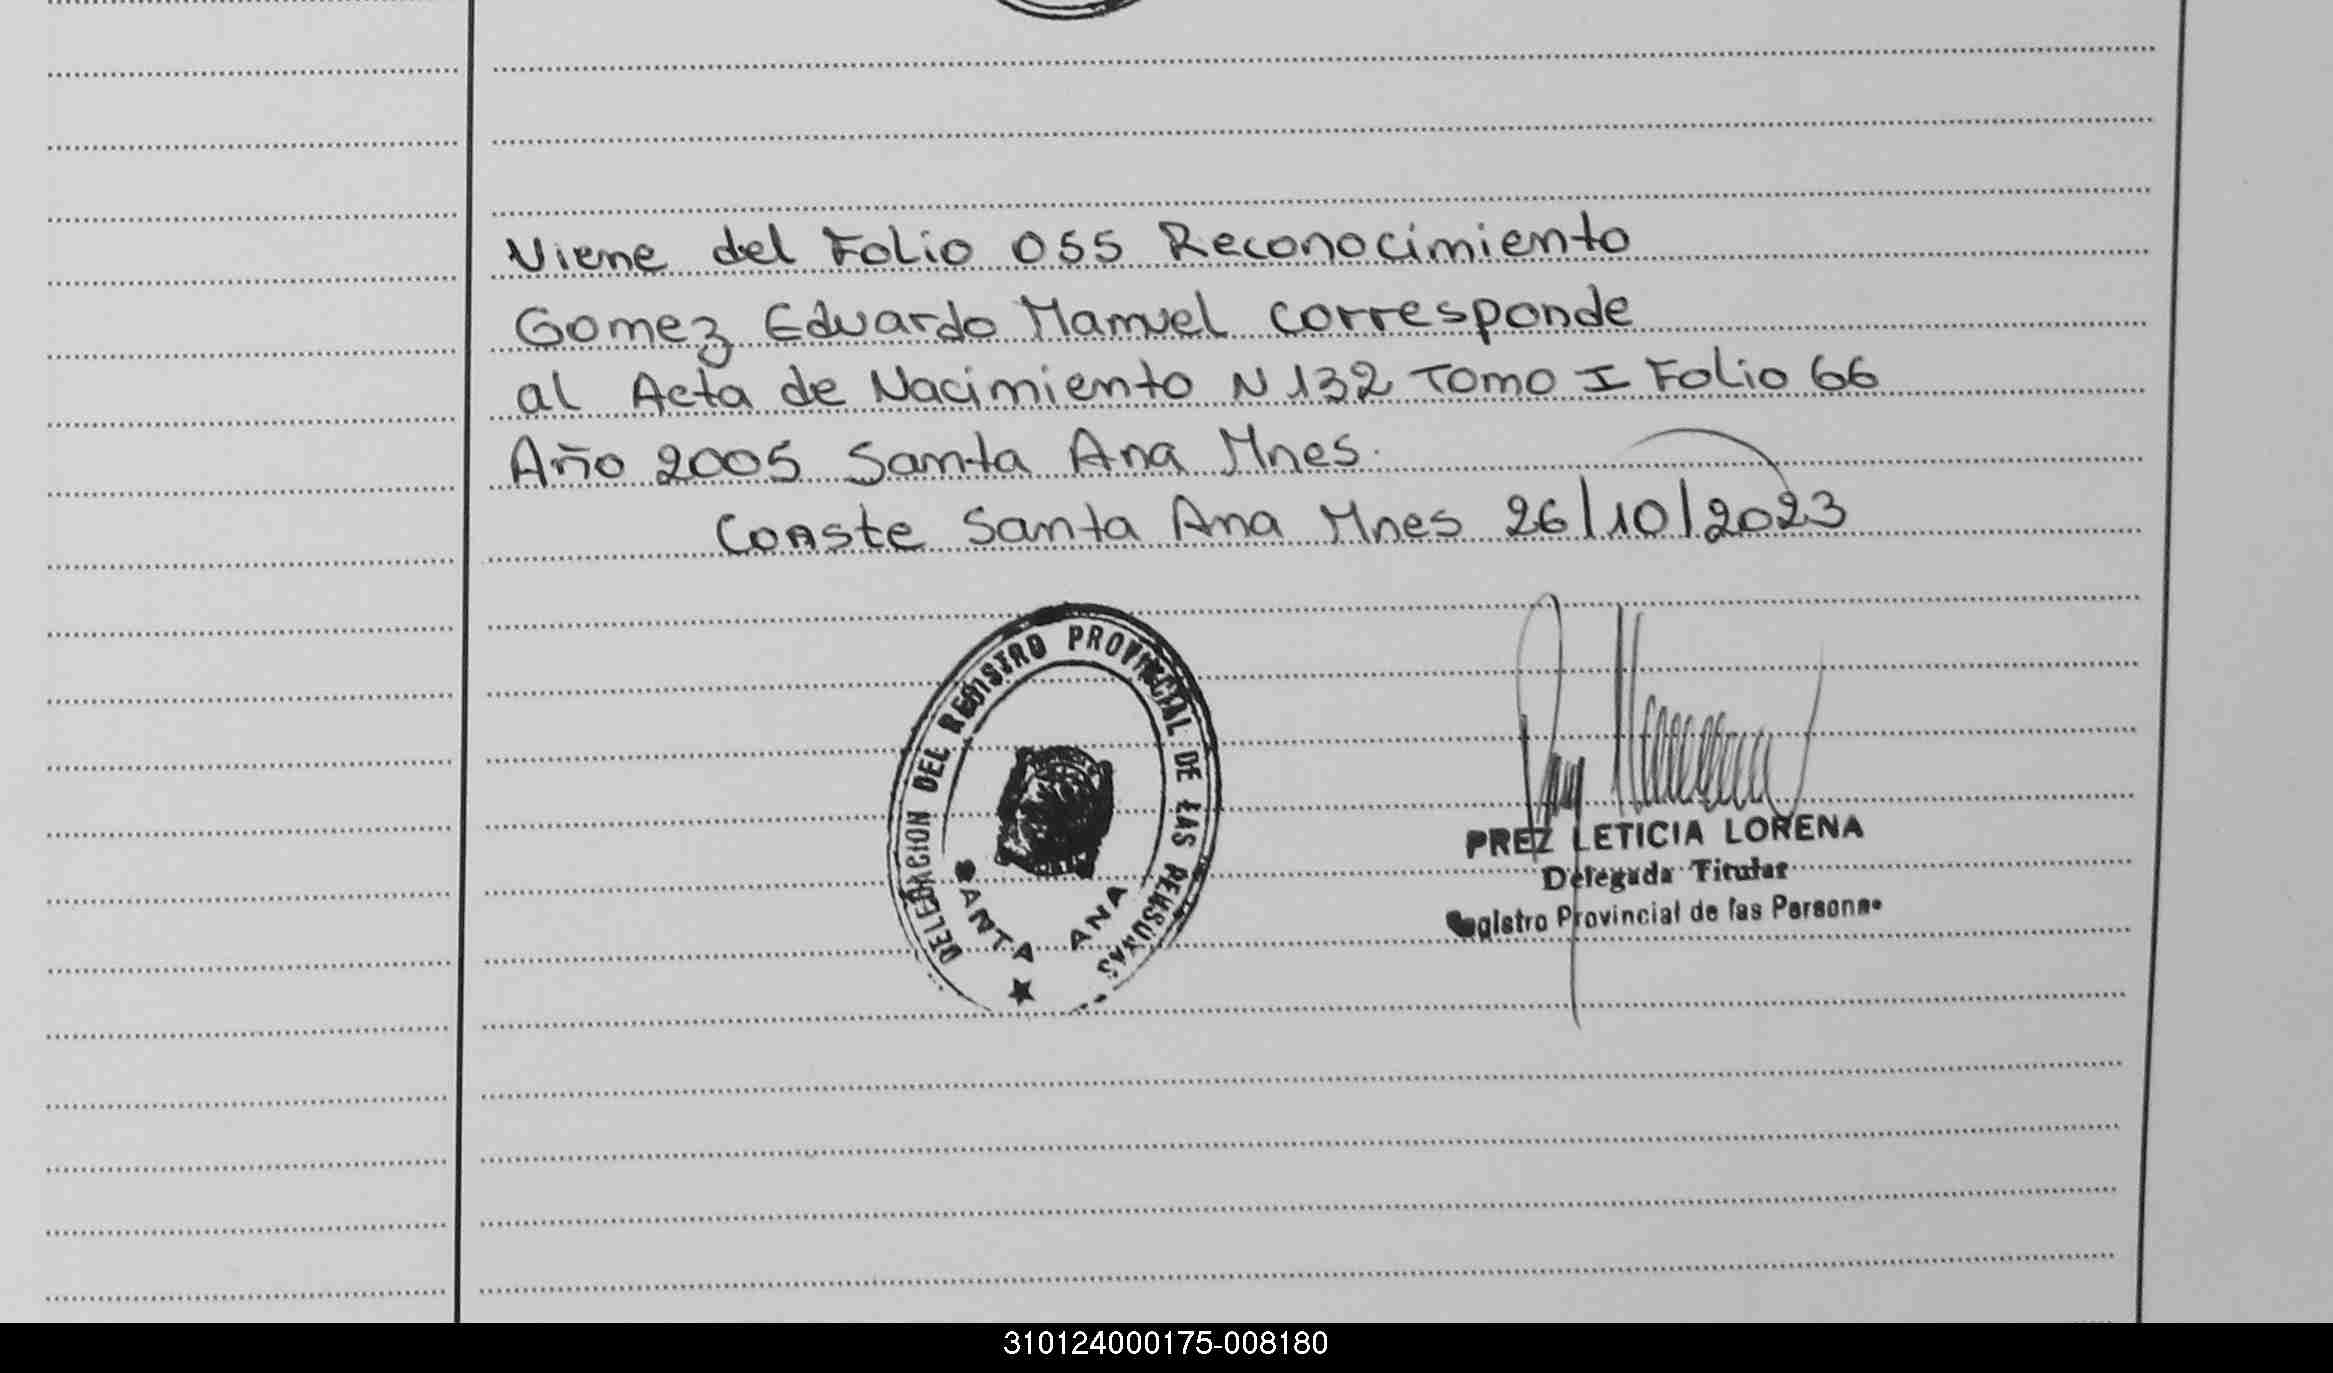 Viene del Folio 055 Reconocimiento
Gomez Eduardo Manuel corresponde
al Acta de Nacimiento N 132 Tomo I Folio 66
Año 2005 Santa Ana Mnes.
Conste Santa Ana Mnes 26/10/2023
DELEGACION DEL REGISTRO PROVINCIAL DE LAS PERSONAS
SANTA ANA
PREZ LETICIA LORENA
Delegada Titular
Registro Provincial de las Personas
310124000175-008180